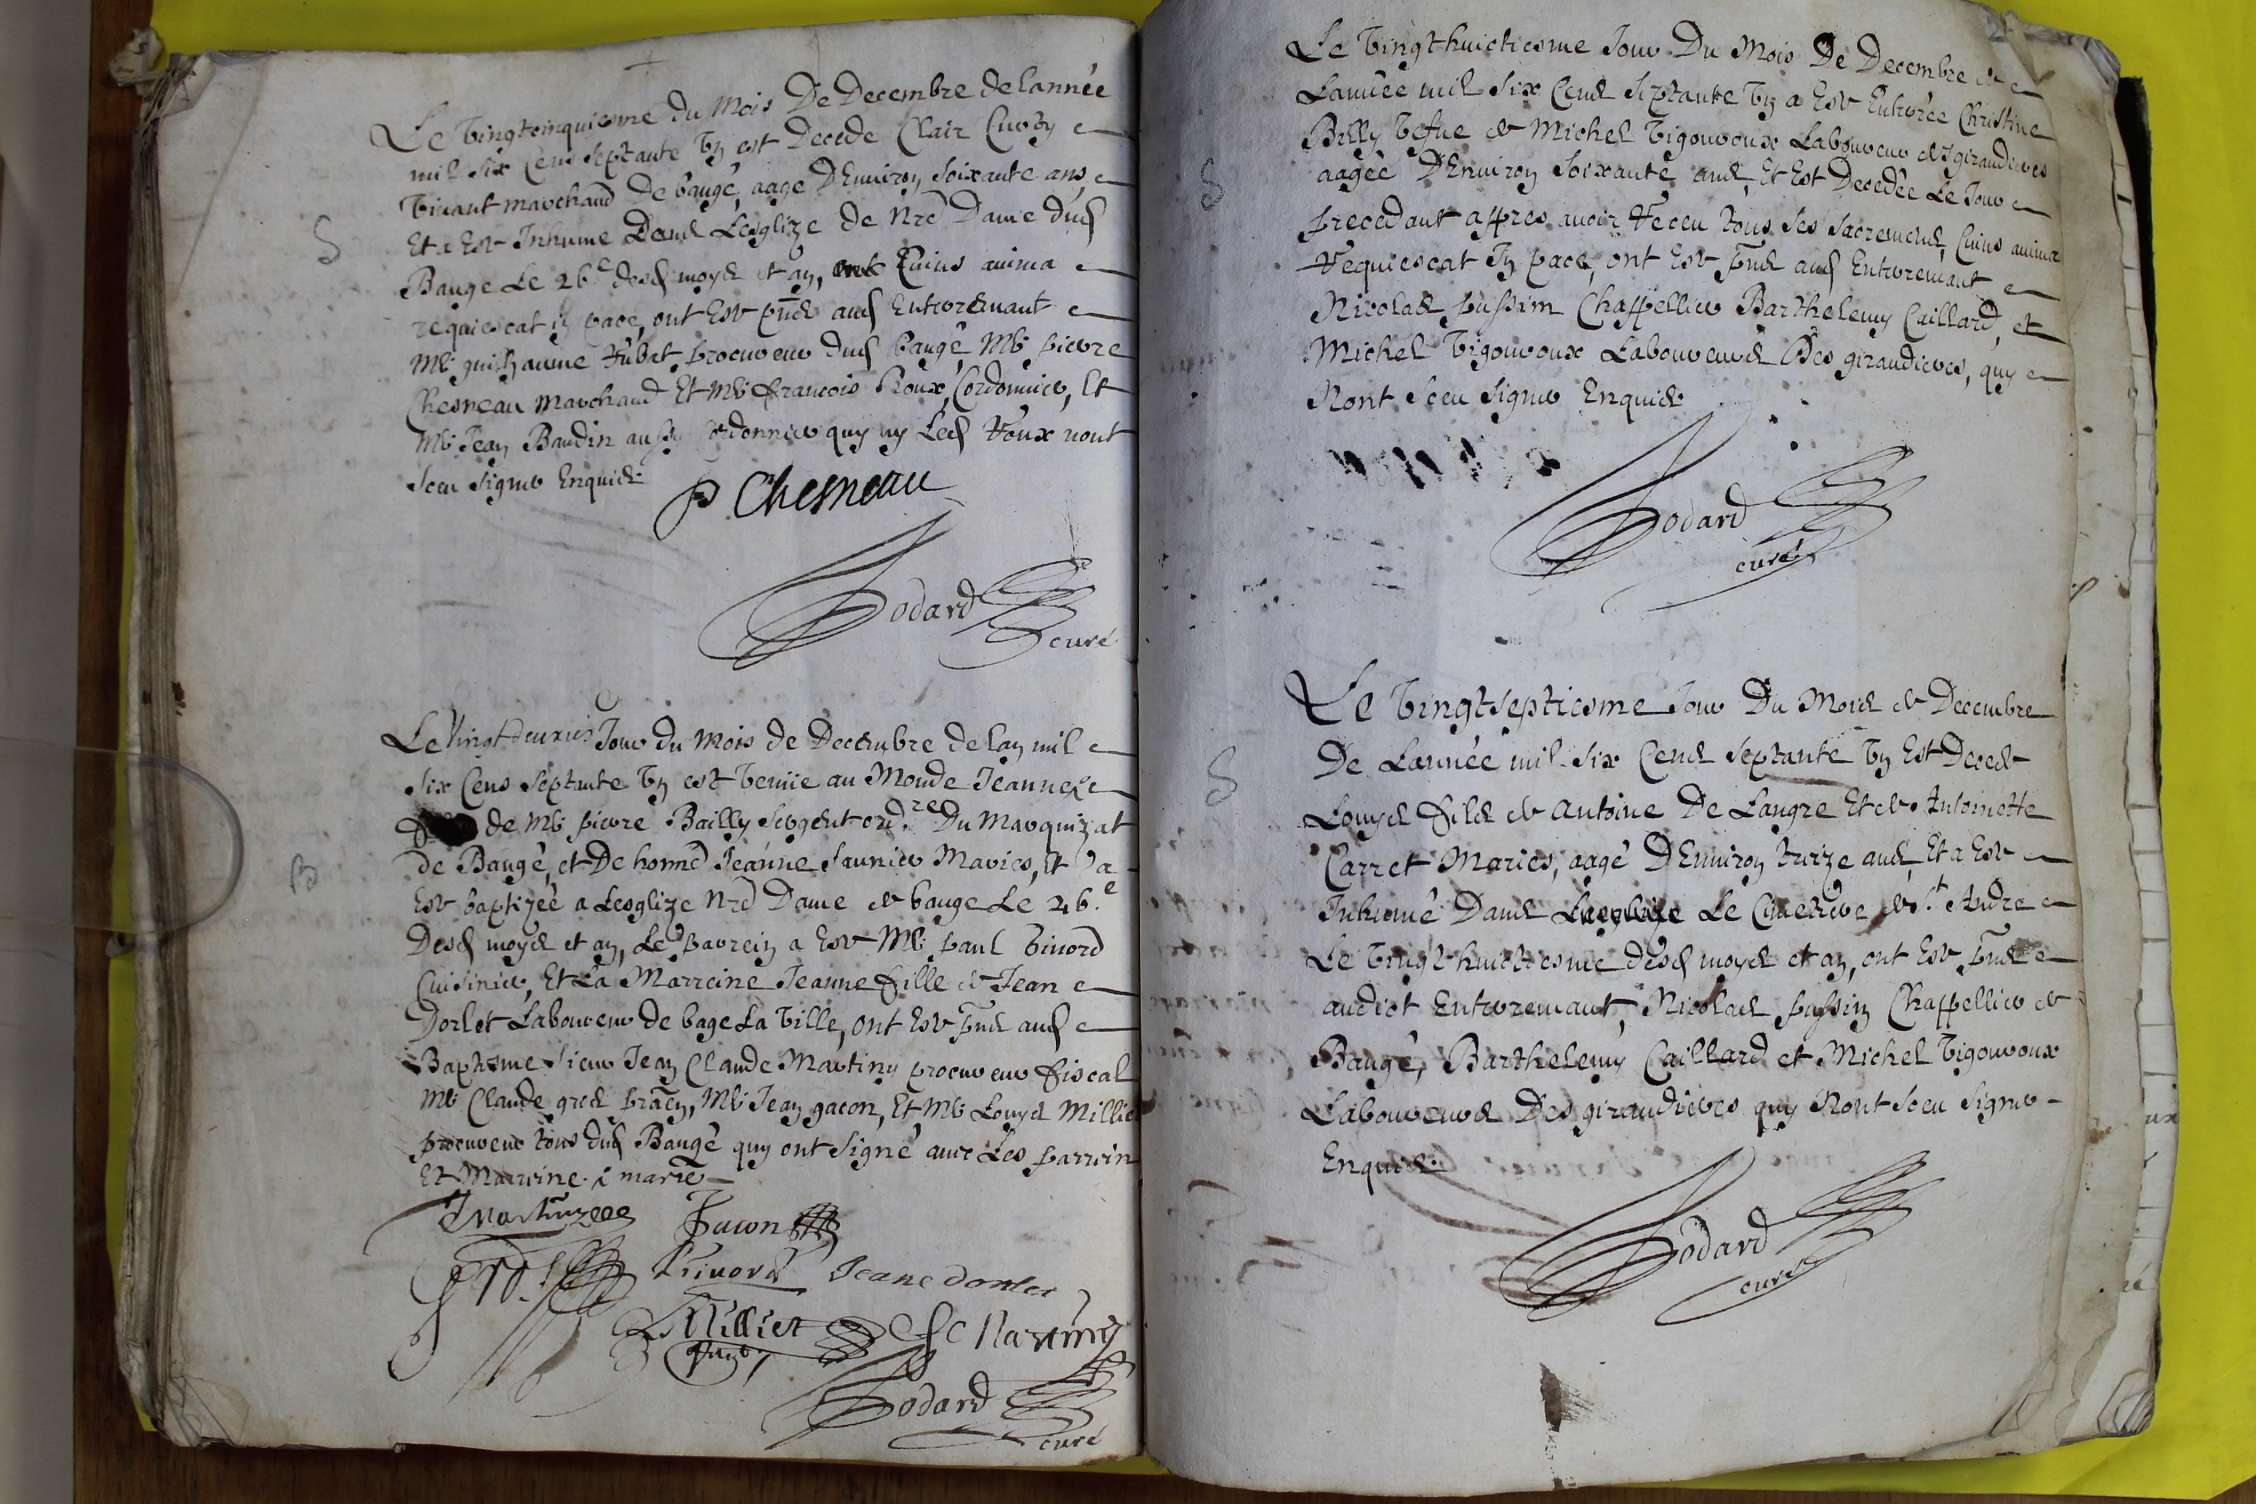 Le vingtcinquiesme du Mois De Decembre de lannée
mil six cens septante vn est Decede Clair Curby
vivant marchand de baugé, aagé d'Environ soixante ans,
Et a Esté Inhume dans Lesglize de Nre Dame dud
Baugé Le 26e desd moys et an, Cuius anima
requiescat in pace, ont Esté pnts aud Enterremant
Me guilhaume procureur dud baugé Me pierre
Chesneau marchand Et Me francois Roux, Cordonnier, Et
Me Jean Baudin aussy Cordonnier quy ny Led Roux nont
sceu signer Enquis
P Chesneau
Godard
curé
S
Le vingt deuxies Jour du Mois de Decembre de lan mil
six cens septante vn est venüe au Monde Jeanne
de Me pierre Bailly sergent ordre Du Marquizat
de Baugé, et De honne Jeanne Saunier Maries, et a
Esté baptizée a Lesglize Nre Dame de baugé Le 26e
Desd moys et an, Le parrein a Esté Me paul binord
Cuisinier, Et La Marreine Jeanne fille de Jean
Dorlet Laboureur de bage La ville, ont Esté pnts aud
Baptesme sieur Jean Claude Martiny procureur fiscal
Me Claude gros Me Jean gacon, Et Me Louys Milliet
procureur tous dud Baugé quy ont signé avec Les parrein
Et Marreine
B
Gacon
binord Jeane dorlet
Milliet
Godard
curé
Le vingthuictiesme Jour Du Mois De Decembre de
Lannée mil six Cens septante vn a Esté Enterrée Christine
Billy vefue de Michel vigouroux Laboureur des girandieres
aagée D'Environ soixante ans, Et Est Decedée Le Jour
precedant appres avoir receu tous ses sacremens, Cuius anima
requiescat In pace, ont Esté pnts aud Enterremant
Nicolas pussim Chappellier Barthelemy Caillard, et
Michel vigouroux Laboureurs Des girandieres, quy
Nont sceu signer Enquis
S
Godard
curé
Le vingtseptiesme Jour Du Mois de Decembre
De Lannée mil six Cens septante vn Est Decedé
Louys fils de Antoine De Langre Et de Antoinette
Carret Maries, aagé D'Environ treize ans, Et a Esté
Inhumé Dans Lesglize Le Cimetiere de St Andre
Le vingt huictiesme desd moys et an, ont Esté pnts
audict Enterremant, Nicolas pussin Chappellier de
Baugé, Barthelemy Caillard et Michel vigouroux
Laboureurs Des girandieres quy Nont sceu signer
Enquis
S
Godard
curé